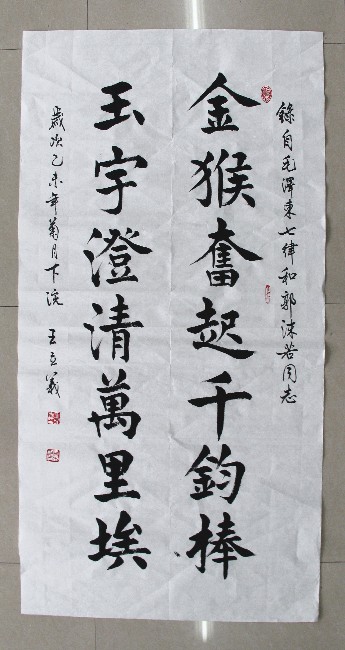 錄自毛澤東七律和郭沫若同志
金猴奮起千鈞棒
玉宇澄清萬里埃
歲次乙未年菊月下浣
王立義